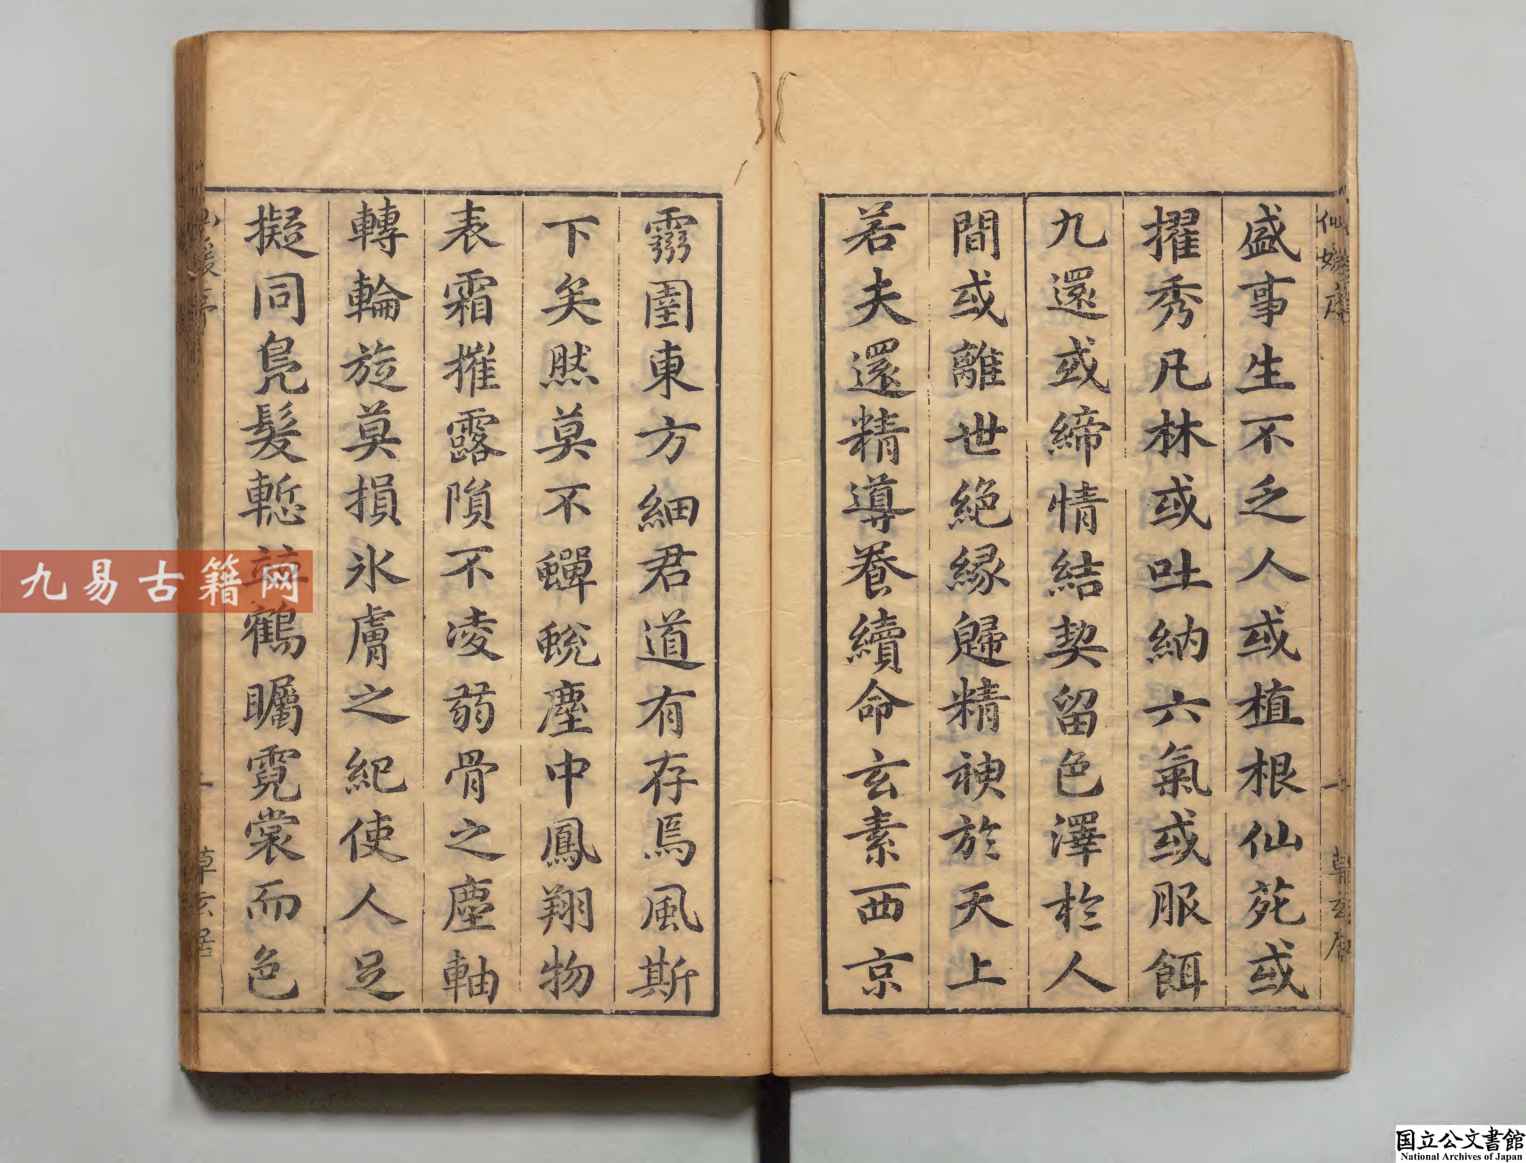 盛事生不乏人或植根仙苑或
擢秀凡林或吐納六氣或服餌
九還或締情結契留色澤於人
間或離世絕緣歸精神於天上
若夫還精導養續命玄素西京
靈圉東方細君道有存焉風斯
下矣然莫不蟬蛻塵中鳳翔物
表霜摧露隕不凌弱骨之塵軸
轉輪旋莫損氷膚之紀使人足
擬同鳧髮慙 鶴矚霓裳而色
一
草玄居
九易古籍网
国立公文書館
National Archives of Japan